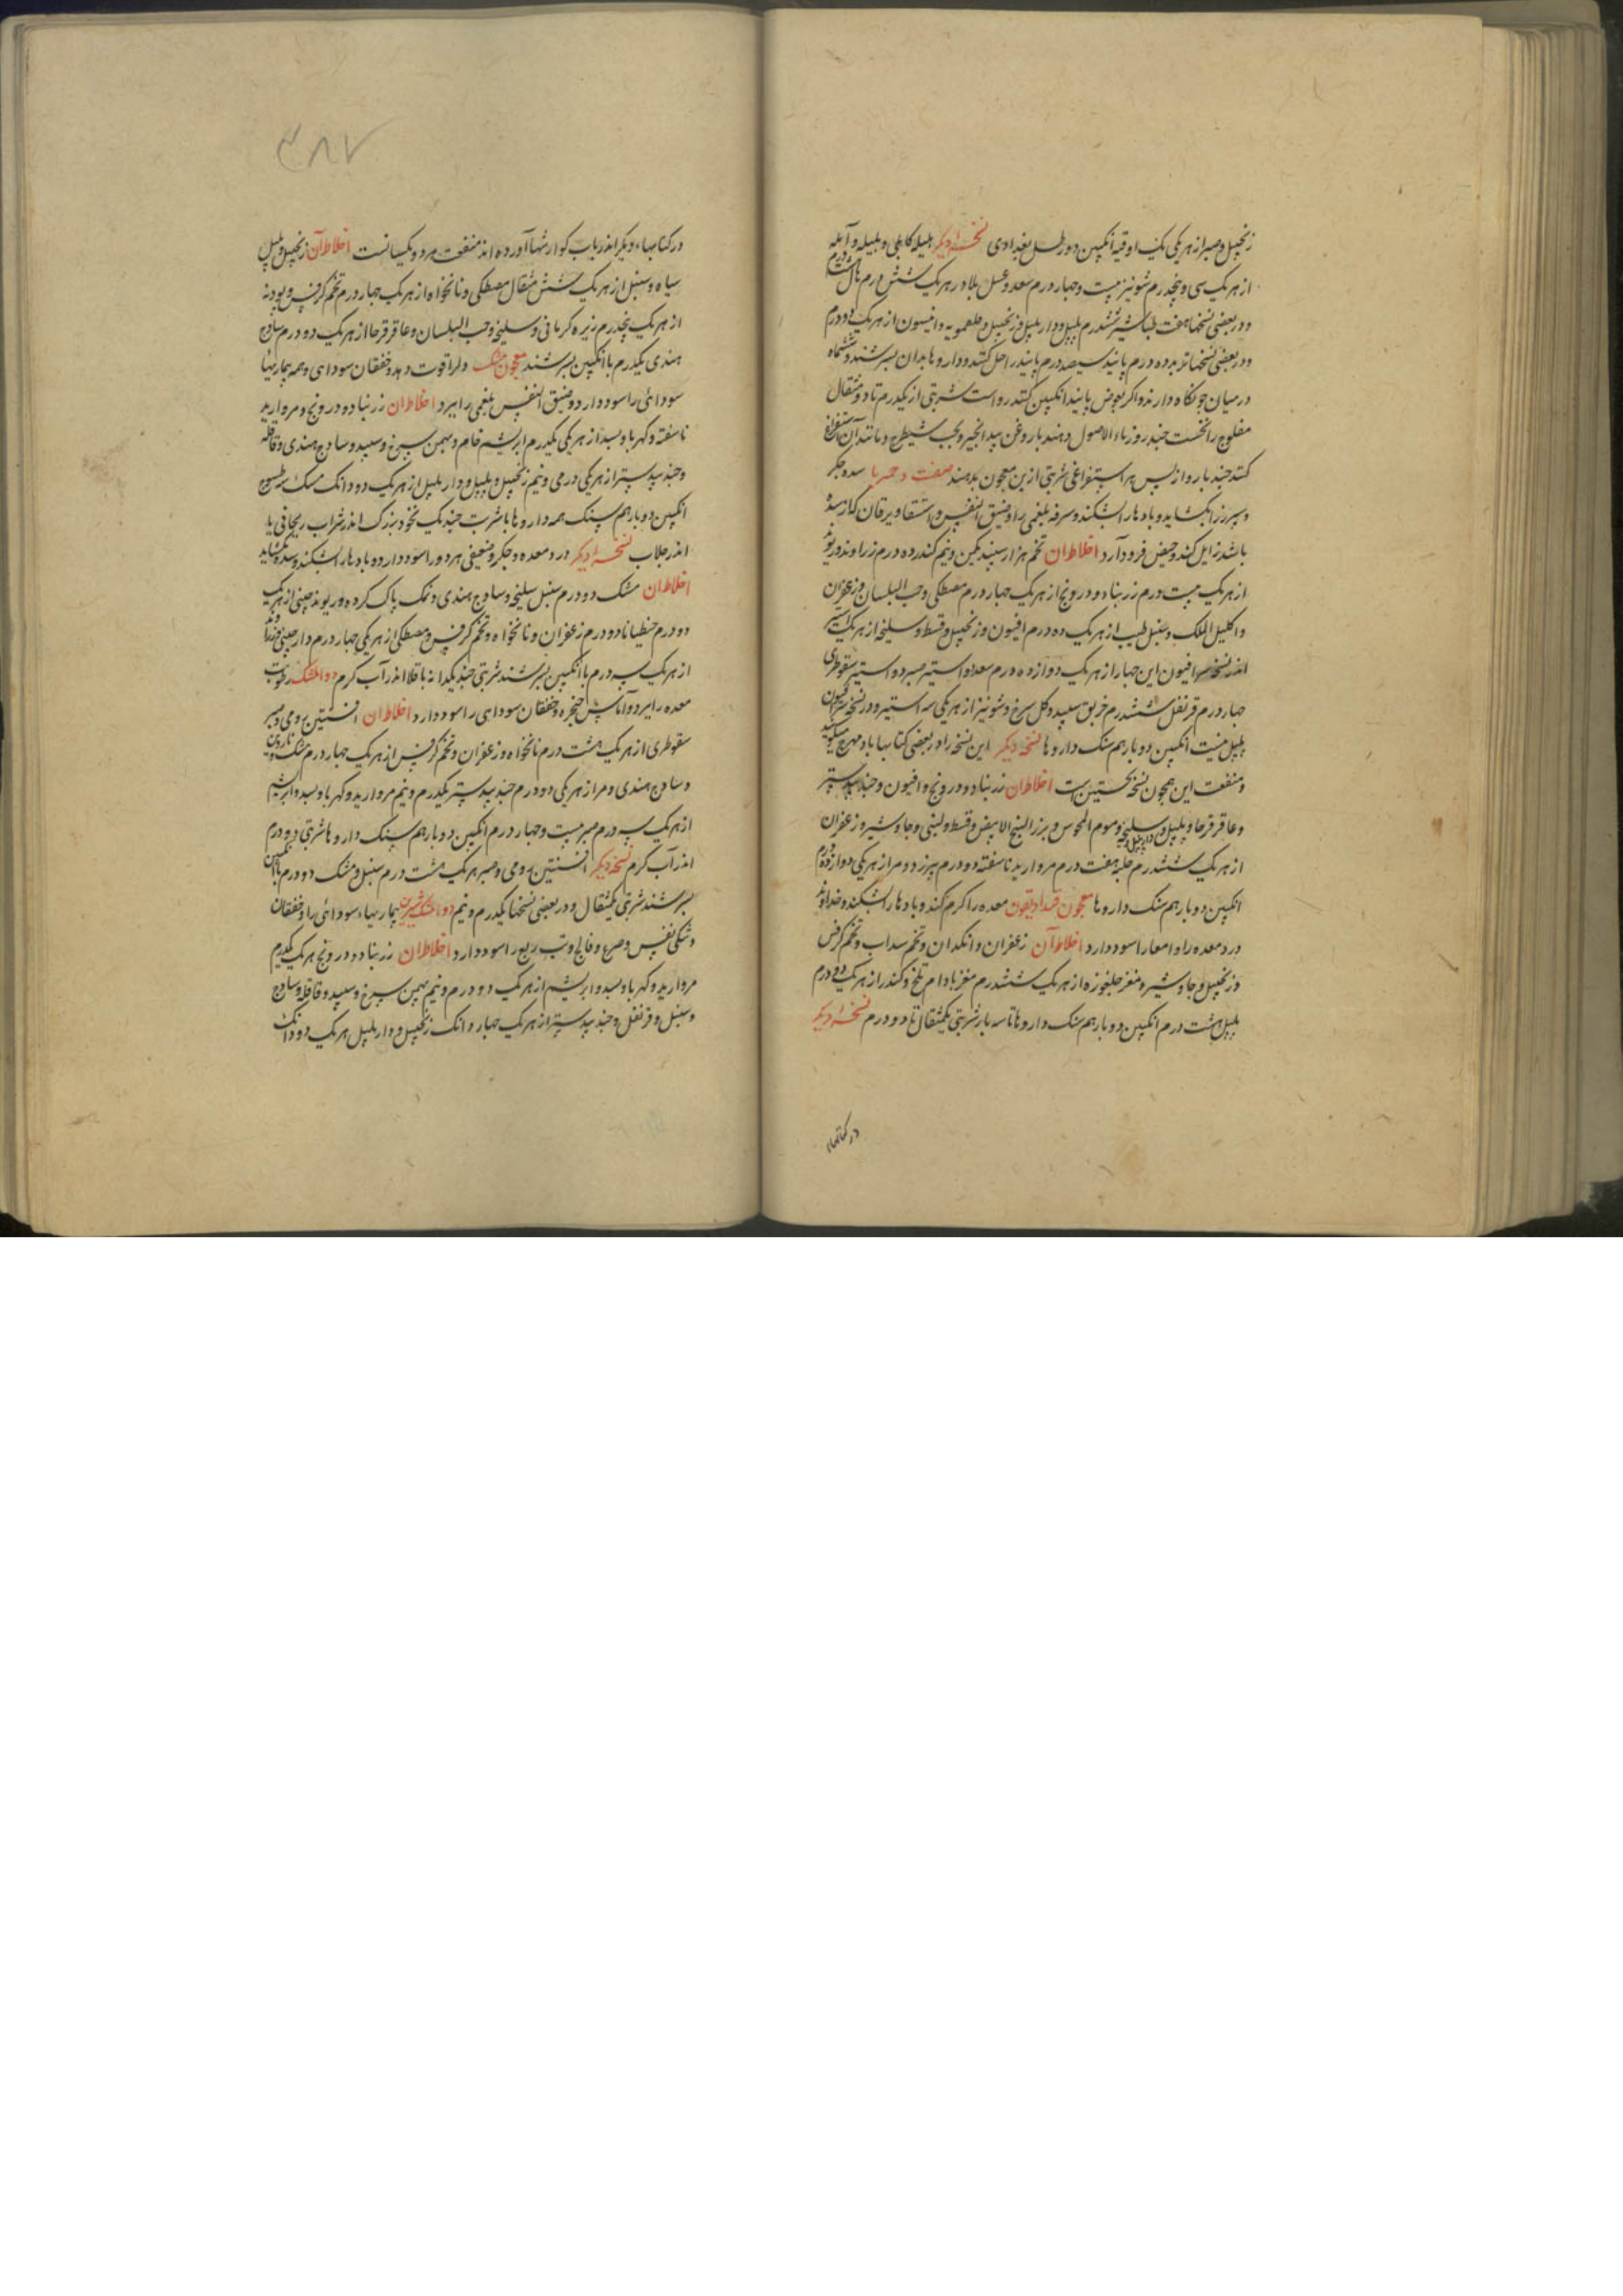 زنجبیل و صبر از هر یکی یک اوقیه انکبین دو رطل بغدادی نسخه دیکر هلیله کابلی و بلیله و آمله
از هر یک سی و پنجدرم شونیز بیست و چهار درم سعد و عسل بلادر هر یک شش درم
و در بعضی نسخها هفت طباشیر ششدرم پلپل و دار پلپل و زنجبیل و فلفمویه و انیسون از هر یک دو درم
و در بعضی نسخها تربد ده درم پانید سیصد درم پانید را حل کنند و داروها بدان بسرشند و ششماه
در میان جو نکاه دارند و اکر بعوض پانید انکبین کنند رواست شربتی از یکدرم تا دو مثقال
مفلوج را نخست چند روز ماء الاصول دهند با روغن بیدانجیر و بحب شیطرج و مانند آن استفراغ
کنند چند بار و از پس هر استفراغی شربتی ازین معجون بدهند صفت دحمرثا سده جکر
و سپرز را بکشاید و بادها را بشکند و سرفه بلغمی را و ضیق النفس و استسقا و یرقان که از سده
باشد زایل کند و حیض فرود آرد اخلاط ان تخم هزار سپند یکمن و نیم کندر ده درم زراوند و ریوند
از هر یک بیست درم زرنباد و درونج از هر یک چهار درم مصطکی و حب البلسان و زعفران
و اکلیل الملک و سنبل طیب از هر یک ده درم افیون و زنجبیل و قسط و سلیخه از هر یک استیر
اندر نسخه افیون این چهار از هر یک دوازده درم سعد دو استیر صبر دو استیر سقوطری
چهار درم قرنفل ششدرم خربق سپید و کل سرخ و شونیز از هر یکی سه استیر و در نسخه
پلپل بیست انکبین دو بار هم سنک داروها نسخه دیکر این نسخه را در بعضی کتابها بادمهرج
و منفعت این همچون نسخه نخستین است اخلاط ان زرنباد و درونج و افیون و جندبیدستر
و عاقرقرحا و پلپل و دارپلپل و سلیخه و موم المجوس و بزر البنج الابیض و قسط و لبنی و جاوشیر و زعفران
از هر یک ششدرم حلبه هفت درم مروارید ناسفته دو درم بیرزد و مر از هر یکی دوازده درم
انکبین دو بار هم سنک داروها معجون قندادیقون معده را کرم کند و بادها را بشکند و خداوند
درد معده را و امعا را سود دارد اخلاط آن زعفران و انکدان و تخم سداب و تخم کرفس
و زنجبیل و جاوشیر و مغز جلغوزه از هر یک ششدرم مغز بادام تلخ و کندر از هر یک دو درم
پلپل هشت درم انکبین دو بار هم سنک داروها تا سه بار شربتی یکمثقال تا دو درم نسخه دیکر
در کتابهاء
۴۸۷
در کتابهاء دیکر اندر باب کوارشها آورده اند منفعت هر دو یکسانست اخلاط آن زنجبیل و پلپل
سیاه و سنبل از هر یک شش مثقال مصطکی و نانخواه از هر یک چهار درم تخم کرفس و پودنه
از هر یک پنجدرم زیره کرمانی و سلیخه و حب البلسان و عاقرقرحا از هر یک دو درم ساذج
هندی یکدرم با انکبین بسرشند معجون مشک دل را قوت دهد و خفقان سودای و همه بیماریها
سودائی را سود دارد و ضیق النفس بلغمی را ببرد اخلاط ان زرنباد و درونج و مروارید
ناسفته و کهربا و بسد از هر یکی یکدرم ابریشم خام و بهمن سرخ و سپید و ساذج هندی و قاقله
و جندبیدستر از هر یکی درمی و نیم زنجبیل و پلپل و دار پلپل از هر یک دو دانک مشک سه طسوج
انکبین دو بار هم سنک همه داروها با شربت چند یک نخود بزرک اندر شراب ریحانی یا
اندر جلاب نسخه دیکر درد معده و جکر و ضعیفی هر دو را سود دارد و بادها را بشکند و سده بکشاید
اخلاط ان مشک دو درم سنبل سلیخه و ساذج هندی و نمک پاک کرده و ریوند چینی از هر یک
دو درم جنطیانا دو درم زعفران و نانخواه و تخم کرفس و مصطکی از هر یکی چهار درم دارچینی و زراوند
از هر یک سه درم با انکبین بسرشند شربتی چند یکدانه باقلا اندر آب کرم دوا المشک رطوبت
معده را ببرد و آماس حنجره و خفقان سودای را سود دارد اخلاط ان افسنتین رومی و صبر
سقوطری از هر یک هشت درم نانخواه و زعفران و تخم کرفس از هر یک چهار درم مشک
و ساذج هندی و مر از هر یکی دو درم جندبیدستر یکدرم و نیم مروارید و کهربا و بسد و ابریشم
از هر یک سه درم صبر بیست و چهار درم انکبین دو بار هم سنک داروها شربتی دو درم
اندر آب کرم نسخه دیکر افسنتین رومی و صبر هر یک هشت درم سنبل و مشک دو درم با انکبین
بسرشند شربتی یکمثقال و در بعضی نسخها یکدرم و نیم دوا المشک شیرین بیماریهاء سودائی را و خفقان
و تنکی نفس و صرع و فالج و تب ربع را سود دارد اخلاط ان زرنباد و درونج هر یک یکدرم
مروارید و کهربا و بسد و ابریشم از هر یک دو درم و نیم بهمن سرخ و سپید و قاقله و ساذج
و سنبل و قرنفل و جندبیدستر از هر یک چهار دانک زنجبیل و دار پلپل هر یک دو دانک